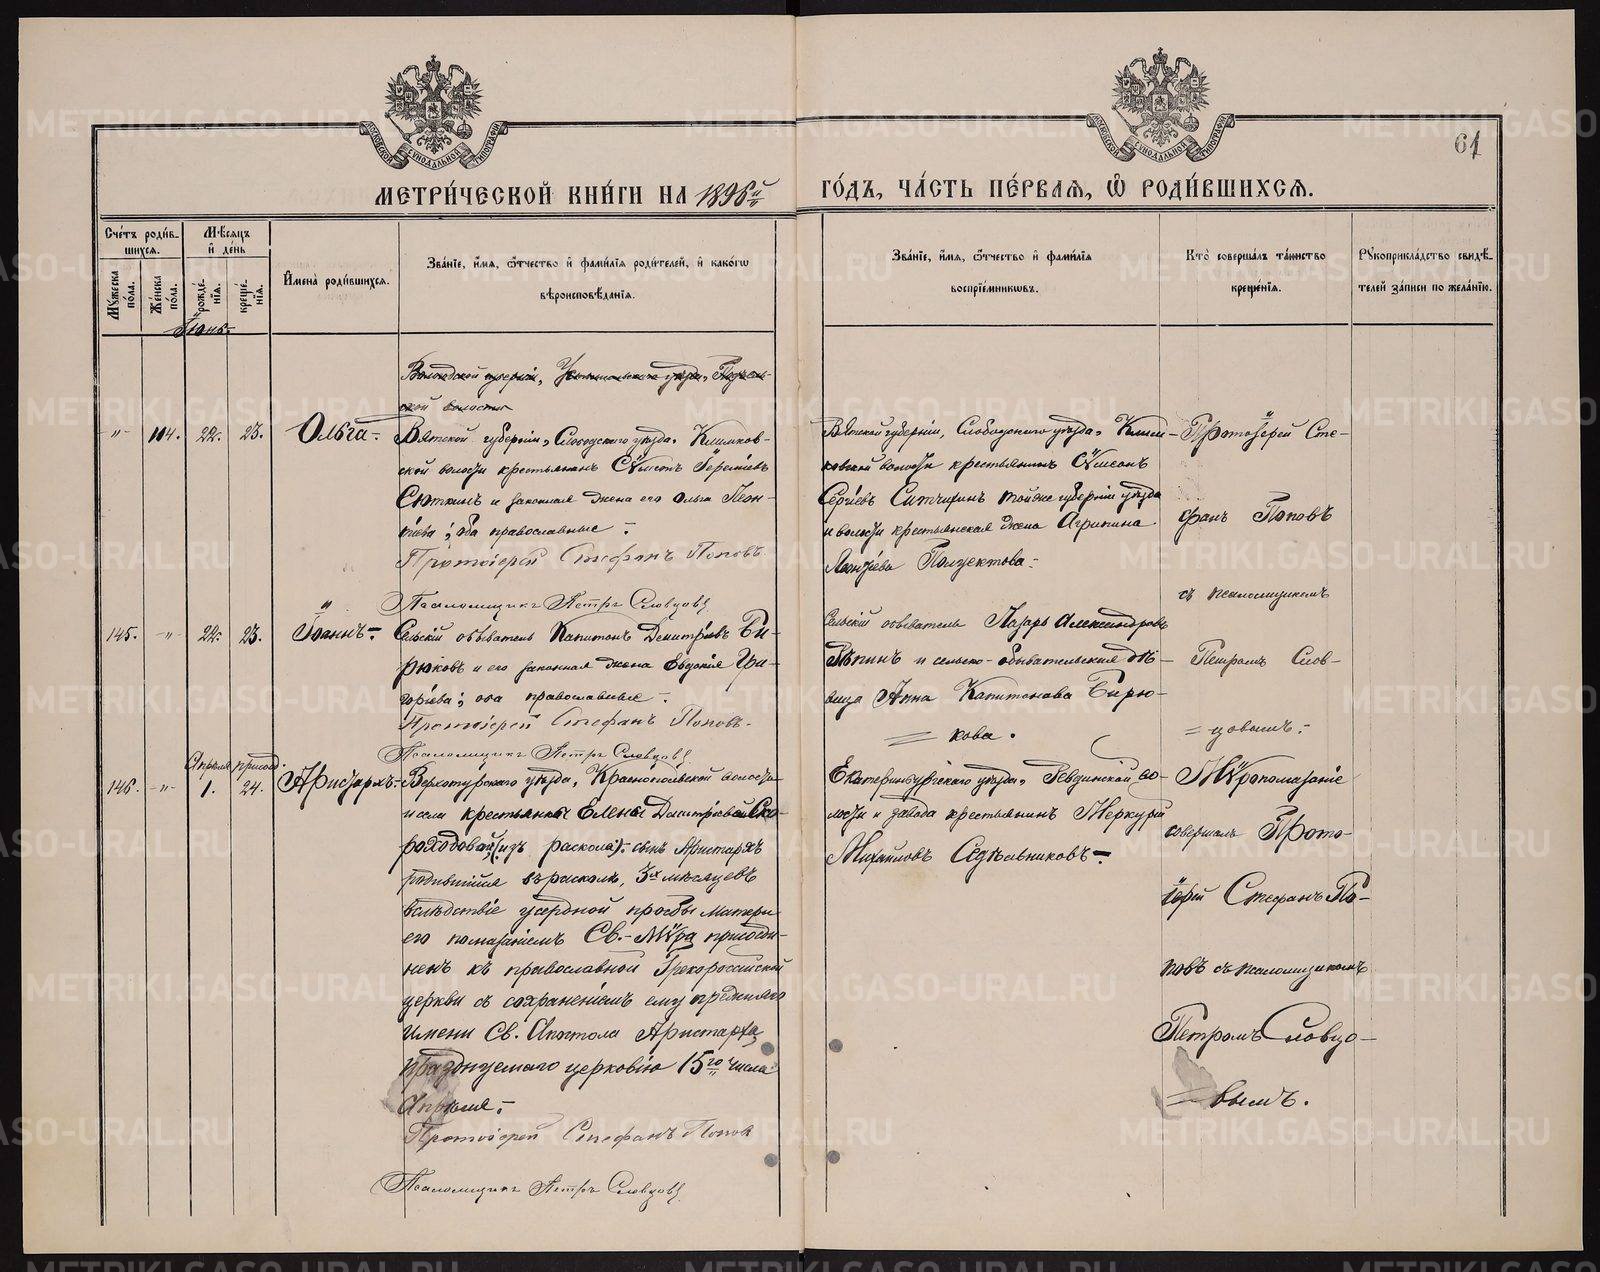 61
МЕТРИ́ЧЕСКОЙ КНИ́ГИ НА 1896й ГО́ДЪ, ЧА́СТЬ ПЕ́РВАѦ, Ѡ҆ РОДИ́ВШИХСѦ.
Сче́тъ роди́в-
шихсѧ.
Мѣ́сѧцъ
и҆ де́нь
Мꙋ́жеска по́ла.
Же́нска по́ла.
рожде́-
нїѧ.
креще́-
нїѧ.
И҆мена̀ роди́вшихсѧ.
Зва́нїе, и҆́мѧ, ѻ҆́тчество и҆ фами́лїѧ роди́телей, и҆ како́гѡ
вѣроисповѣ́данїѧ.
Зва́нїе, и҆́мѧ, ѻ҆́тчество и҆ фами́лїѧ
воспрїе́мникѡвъ.
Кто̀ соверша́лъ та́инство
креще́нїѧ.
Рꙋкоприкла́дство свидѣ́-
телей за́писи по жела́нїю.
Іюнь.
Вологодской губерніи, Устьсысольскаго уѣзда,
ской волости
" 104. 22. 23. Ольга.
Вятской губерніи, Слободскаго уѣзда, Климков-
ской волости крестьянинъ Сѵмеонъ Іереміевъ
Сюткинъ и законная жена его Ольга Леон-
тіева; оба православные.
Протоіерей Стефанъ Поповъ
Псаломщикъ Петръ Словцовъ
Вятской губерніи, Слободскаго уѣзда, Клим-
ковской волости крестьянинъ Сѵмеонъ
Сергіевъ Ситчихинъ тойже губерніи уѣзда
и волости крестьянская жена Агрипина
Леонтіева Полуектова.
Протоіерей Сте-
фанъ Поповъ
съ псаломщикомъ
Петромъ Слов-
цовымъ.
145. " 22. 23. Іоаннъ.
Сельскій обыватель Капитонъ Димитріевъ Би-
рюковъ и его законная жена Евдокія Гри-
горьева; оба православные.
Протоіерей Стефанъ Поповъ.
Псаломщикъ Петръ Словцовъ
Сельскій обыватель Лазарь Александровъ
Рѣпинъ и сельско-обывательская дѣ-
вица Анна Капитонова Бирю-
кова.
Апрѣля присоед.
146. " 1. 24. Аристархъ.
Верхотурскаго уѣзда, Краснопольской волости
и села крестьянки Елены Димитріевой Ско-
роходовой (изъ раскола) сынъ Аристархъ
родившійся въ расколѣ, 3хъ мѣсяцевъ
вслѣдствіе усердной просьбы матери
его помазаніемъ Св. Мѵра присоеди-
ненъ къ православной Грекороссійской
церкви съ сохраненіемъ ему прежняго
имени Св. Апостола Аристарха
празднуемаго церковію 15го числа
Апрѣля.
Протоіерей Стефанъ Поповъ
Псаломщикъ Петръ Словцовъ
Екатеринбургскаго уѣзда, Ревдинской во-
лости и завода крестьянинъ Меркурій
Михайловъ Сѣдѣльниковъ.
Мѵропомазаніе
совершалъ Прото-
іерей Стефанъ По-
повъ съ псаломщикомъ
Петромъ Словцо-
вымъ.
METRIKI.GASO-URAL.RU